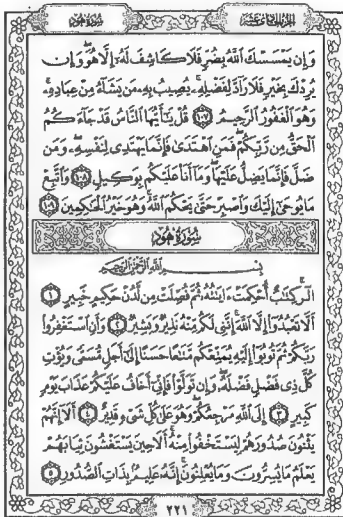 الجزء الحادي عشر
سورة هود
وَإِن يَمْسَسْكَ ٱللَّهُ بِضُرٍّ فَلَا كَاشِفَ لَهُۥٓ إِلَّا هُوَ ۖ وَإِن
يُرِدْكَ بِخَيْرٍ فَلَا رَآدَّ لِفَضْلِهِۦ ۚ يُصِيبُ بِهِۦ مَن يَشَآءُ مِنْ عِبَادِهِۦ ۚ
وَهُوَ ٱلْغَفُورُ ٱلرَّحِيمُ ١٠٧ قُلْ يَٰٓأَيُّهَا ٱلنَّاسُ قَدْ جَآءَكُمُ
ٱلْحَقُّ مِن رَّبِّكُمْ ۖ فَمَنِ ٱهْتَدَىٰ فَإِنَّمَا يَهْتَدِى لِنَفْسِهِۦ ۖ وَمَن
ضَلَّ فَإِنَّمَا يَضِلُّ عَلَيْهَا ۖ وَمَآ أَنَا۠ عَلَيْكُم بِوَكِيلٍ ١٠٨ وَٱتَّبِعْ
مَا يُوحَىٰٓ إِلَيْكَ وَٱصْبِرْ حَتَّىٰ يَحْكُمَ ٱللَّهُ ۚ وَهُوَ خَيْرُ ٱلْحَٰكِمِينَ ١٠٩
سُورَةُ هُودٍ
بِسْمِ ٱللَّهِ ٱلرَّحْمَٰنِ ٱلرَّحِيمِ
الٓر ۚ كِتَٰبٌ أُحْكِمَتْ ءَايَٰتُهُۥ ثُمَّ فُصِّلَتْ مِن لَّدُنْ حَكِيمٍ خَبِيرٍ ١
أَلَّا تَعْبُدُوٓا۟ إِلَّا ٱللَّهَ ۚ إِنَّنِى لَكُم مِّنْهُ نَذِيرٌ وَبَشِيرٌ ٢ وَأَنِ ٱسْتَغْفِرُوا۟
رَبَّكُمْ ثُمَّ تُوبُوٓا۟ إِلَيْهِ يُمَتِّعْكُم مَّتَٰعًا حَسَنًا إِلَىٰٓ أَجَلٍ مُّسَمًّى وَيُؤْتِ
كُلَّ ذِى فَضْلٍ فَضْلَهُۥ ۖ وَإِن تَوَلَّوْا۟ فَإِنِّىٓ أَخَافُ عَلَيْكُمْ عَذَابَ يَوْمٍ
كَبِيرٍ ٣ إِلَى ٱللَّهِ مَرْجِعُكُمْ ۖ وَهُوَ عَلَىٰ كُلِّ شَىْءٍ قَدِيرٌ ٤ أَلَآ إِنَّهُمْ
يَثْنُونَ صُدُورَهُمْ لِيَسْتَخْفُوا۟ مِنْهُ ۚ أَلَا حِينَ يَسْتَغْشُونَ ثِيَابَهُمْ
يَعْلَمُ مَا يُسِرُّونَ وَمَا يُعْلِنُونَ ۚ إِنَّهُۥ عَلِيمٌۢ بِذَاتِ ٱلصُّدُورِ ٥
٢٢١